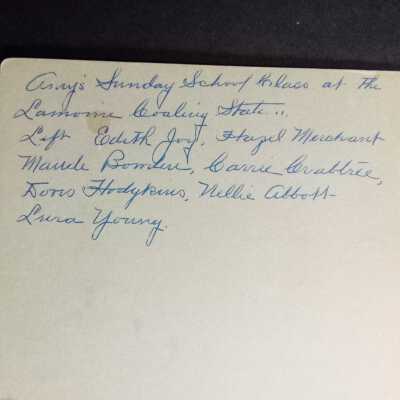 Amy's Sunday School Class at the
Lamoine Coaling Stati..
Left Edith Joy, Hazel Merchant
Maude Bowden, Carrie Crabtree,
Doris Hodgkins, Nellie Abbott
Lura Young.